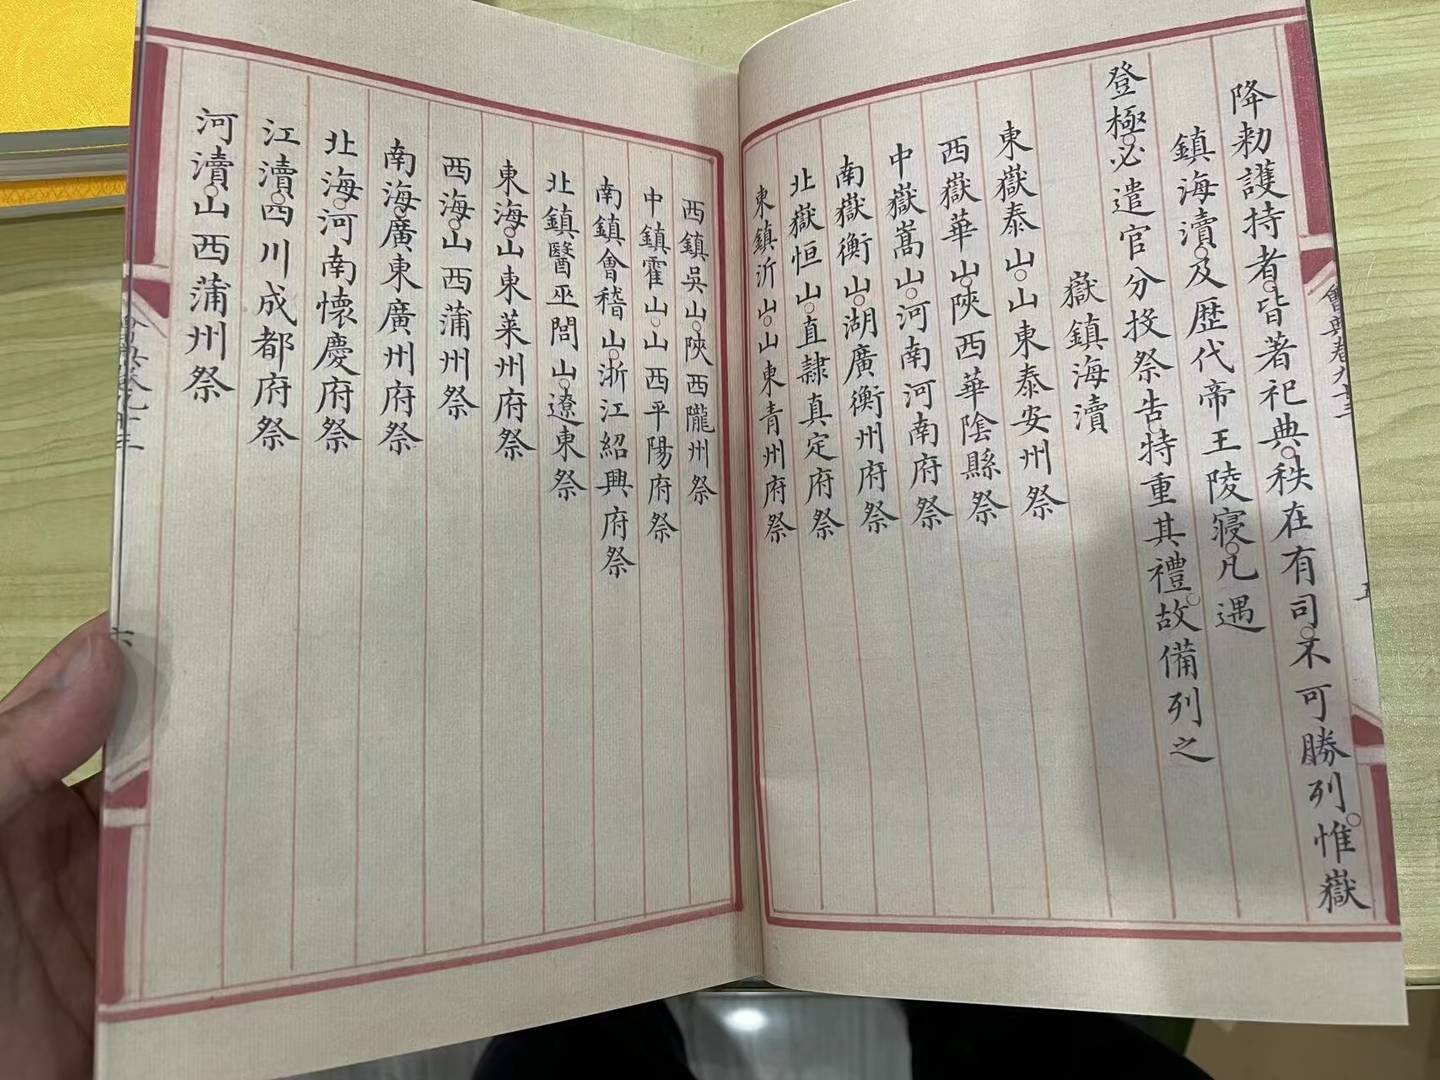 降勑護持者。皆著祀典。秩在有司。不可勝列。惟嶽
鎮海瀆。及歷代帝王陵寢。凡遇
登極。必遣官分投祭告。特重其禮。故備列之
嶽鎮海瀆
東嶽泰山。山東泰安州祭
西嶽華山。陝西華陰縣祭
中嶽嵩山。河南河南府祭
南嶽衡山。湖廣衡州府祭
北嶽恒山。直隷真定府祭
東鎮沂山。山東青州府祭
西鎮吳山。陝西隴州祭
中鎮霍山。山西平陽府祭
南鎮會稽山。浙江紹興府祭
北鎮醫巫閭山。遼東祭
東海。山東萊州府祭
西海。山西蒲州祭
南海。廣東廣州府祭
北海。河南懷慶府祭
江瀆。四川成都府祭
河瀆。山西蒲州祭
六